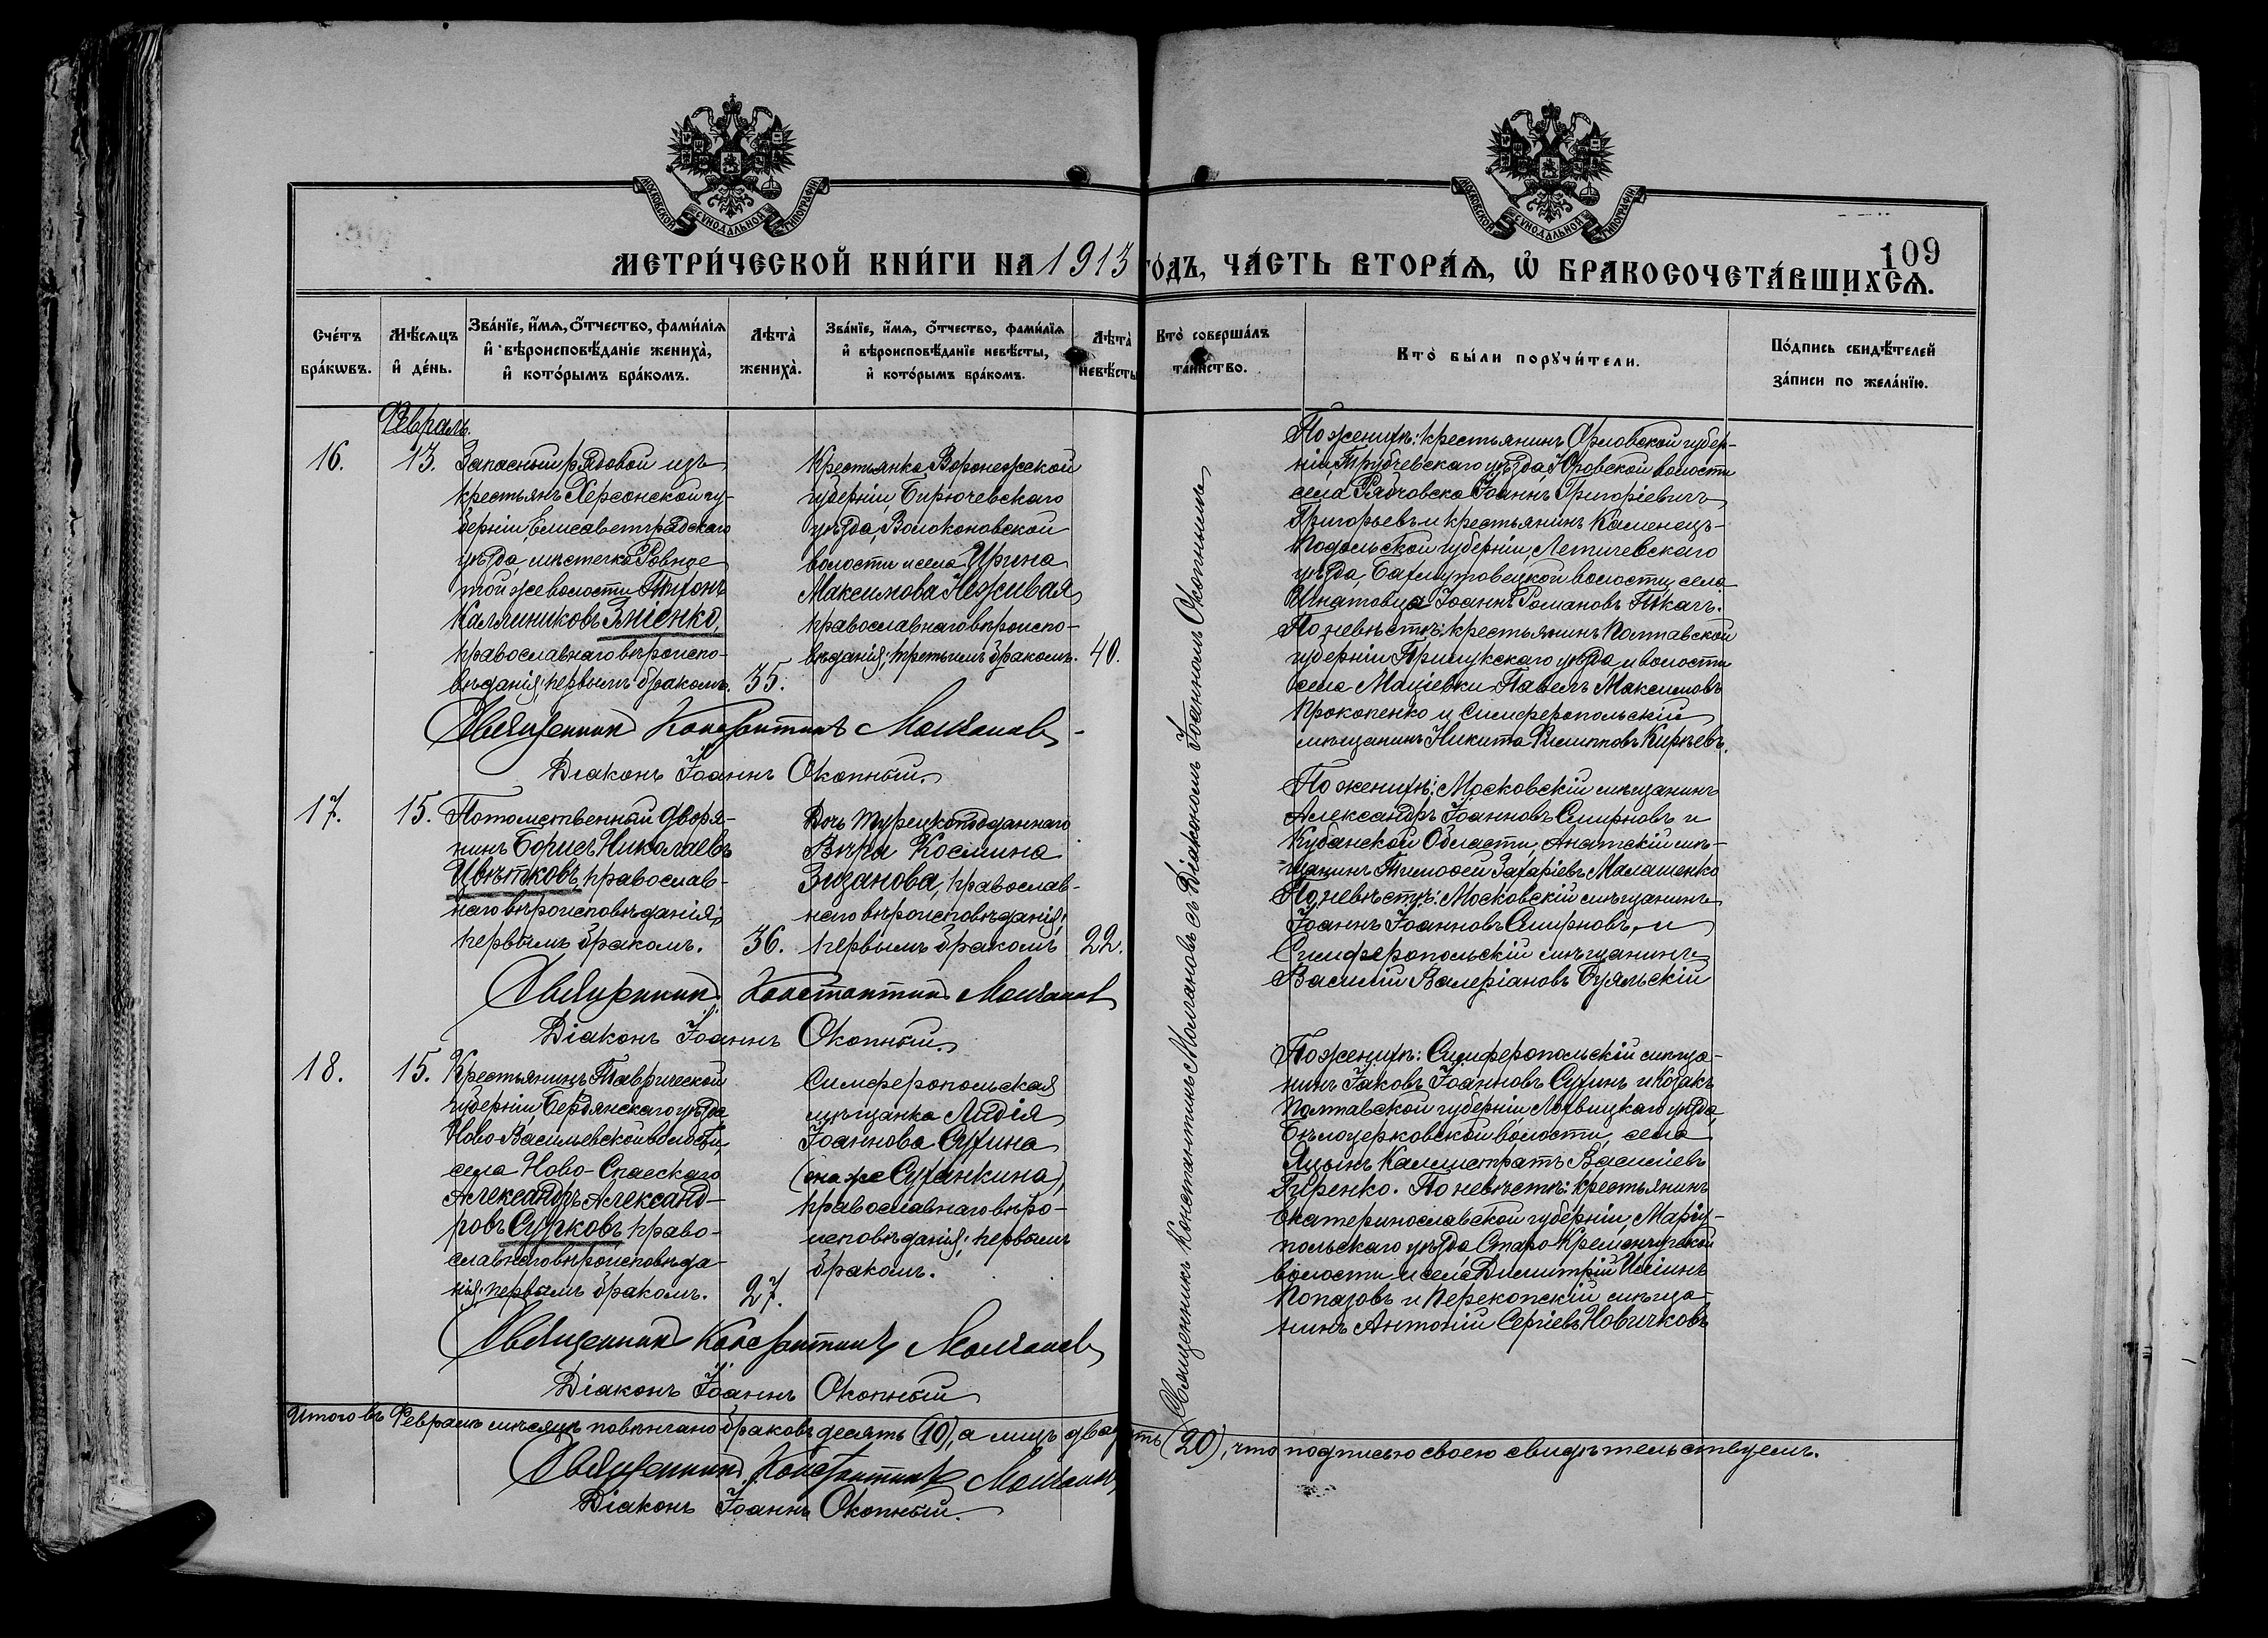 МОСКОВСКОЙ СѴНОДАЛЬНОЙ ТИПОГРАФІИ
МОСКОВСКОЙ СѴНОДАЛЬНОЙ ТИПОГРАФІИ
109
МЕТРИ́ЧЕСКОЙ КНИ́ГИ НА 1913 ГО́ДЪ, ЧА́СТЬ ВТОРА́Ѧ, Ѡ҆ БРАКОСОЧЕТА́ВШИХСѦ.
Сче́тъ бра́кѡвъ.
Мѣ́сяцъ и҆ де́нь.
Зва́нїе, и҆́мѧ, ѻ҆́тчество, фами́лїѧ
и҆ вѣроисповѣ́данїе жениха̀,
и҆ кото́рымъ бра́комъ.
Лѣта̀ жениха̀.
Зва́нїе, и҆́мѧ, ѻ҆́тчество, фами́лїѧ
и҆ вѣроисповѣ́данїе невѣ́сты,
и҆ кото́рымъ бра́комъ.
Лѣта̀ невѣ́сты
Кто̀ соверша́лъ
та́инство.
Кто̀ бы́ли порꙋчи́тели.
По́дпись свидѣ́телей
за́писи по жела́нїю.
Февраль.
16.
13.
Запасный рядовой изъ
крестьянъ Херсонской гу-
берніи, Елисаветградскаго
уѣзда, мѣстечка Ровное
той же волости Тихонъ
Каллиниковъ Зміенко,
православнаго вѣроиспо-
вѣданія; первымъ бракомъ.
35.
Крестьянка Воронежской
губерніи, Бирючевскаго
уѣзда, Волоконовской
волости и села Ирина
Максимова Неживая,
православнаго вѣроиспо-
вѣданія; третьимъ бракомъ.
40.
По женихѣ: крестьянинъ Орловской губер-
ніи, Трубчевскаго уѣзда, Юровской волости
села Рябчовска Іоаннъ Григоріевичъ
Григорьевъ и крестьянинъ Каменецъ-
Подольской губерніи, Летичевскаго
уѣзда, Бахмутовецкой волости, села
Игнатовца Іоаннъ Романовъ Ткачъ.
По невѣстѣ: крестьянинъ Полтавской
губерніи Прилукскаго уѣзда и волости
села Маціевки Павелъ Максимовъ
Прокопенко и Симферопольскій
мѣщанинъ Никита Филипповъ Кирѣевъ.
Священникъ Константинъ Молчановъ
Діаконъ Іоаннъ Окопный.
17.
15.
Потомственный дворя-
нинъ Борисъ Николаевъ
Цвѣтковъ, православ-
наго вѣроисповѣданія;
первымъ бракомъ.
36.
Дочь турецкоподданнаго
Вѣра Космина
Зизанова, православ-
наго вѣроисповѣданія;
первымъ бракомъ
22.
По женихѣ: Московскій мѣщанинъ
Александръ Іоанновъ Смирновъ и
Кубанской Области, Анапскій мѣ-
щанинъ Тимоѳей Захаріевъ Малашенко
По невѣстѣ: Московскій мѣщанинъ
Іоаннъ Іоанновъ Смирновъ, и
Симферопольскій мѣщанинъ
Василій Валеріановъ Буяльскій
Священникъ Константинъ Молчановъ
Діаконъ Іоаннъ Окопный.
18.
15.
Крестьянинъ Таврической
губерніи Бердянскаго уѣзда
Ново-Васильевской волости,
села Ново-Спасскаго
Александръ Александ-
ровъ Сурковъ, право-
славнаго вѣроисповѣда-
нія; первымъ бракомъ.
27.
Симферопольская
мѣщанка Лидія
Іоаннова Сухина
(она же Суханкина),
православнаго вѣро-
исповѣданія; первымъ
бракомъ.
По женихѣ: Симферопольскій мѣща-
нинъ Іаковъ Іоанновъ Сухинъ и Козакъ
Полтавской губерніи Лохвицкаго уѣзда,
Бѣлоцерковской волости, села
Яцынъ Каллистратъ Василіевъ
Гиренко. По невѣстѣ: крестьянинъ
Екатеринославской губерніи, Маріу-
польскаго уѣзда Старо-Кременчугской
волости и села Димитрій Иліинъ
Попазовъ и Перекопскій мѣща-
нинъ Антоній Сергіевъ Новичковъ
Священникъ Константинъ Молчановъ
Діаконъ Іоаннъ Окопный
Священникъ Константинъ Молчановъ съ Діакономъ Іоанномъ Окопнымъ
Итого въ Февралѣ мѣсяцѣ повѣнчано браковъ десять (10), а лицъ двадцать (20), что подписью своею свидѣтельствуемъ.
Священникъ Константинъ Молчановъ
Діаконъ Іоаннъ Окопный.